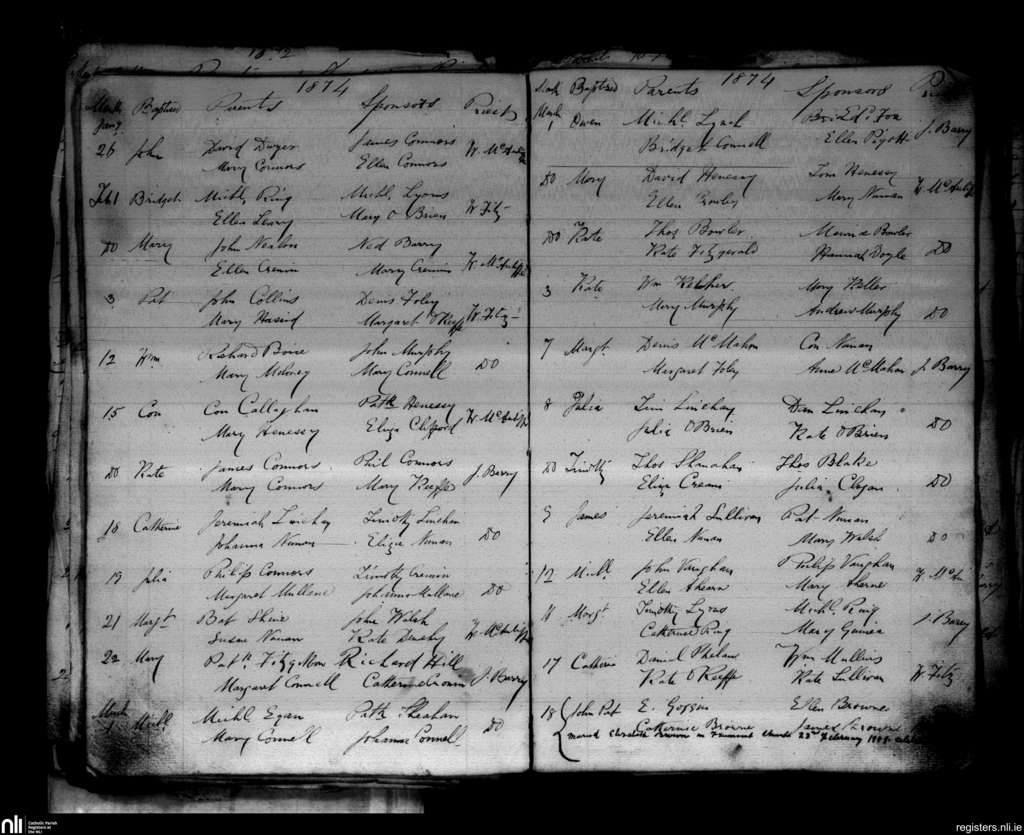 1874
Month Baptised Parents Sponsors Priest
Jany
26 John David Dwyer James Connors W. McAuliffe
Mary Connors Ellen Connors
Feb 1 Bridget Michl. Ring Michl. Lyons W Fitz
Ellen Leary Mary O Brien
DO Mary John Nealon Ned Barry
Ellen Cremin Mary Cremin W McAuliffe
3 Pat John Collins Denis Foley
Mary Margaret O'Keeffe W. Fitz
12 Wm. Richard Boice John Murphy
Mary Moloney Mary Connell DO
15 Con Con Callaghan Patk Henessy
Mary Henessy Eliza Clifford W. McAuliffe
DO Kate James Connors Phil Connors J. Barry
Mary Connors Mary Keeffe
18 Catherine Jeremiah Linehan Timothy Linehan
Johanna Nunan Eliza Nunan DO
19 Julia Philip Connors Timothy Cremin
Margaret Mullane Johanna Mullane DO
21 Margt Bat Shine John Walsh
Susan Nunan Kate W McAuliffe
22 Mary Patk Fitzgibbon Richard Hill
Margaret Connell Catherine Cronin J. Barry
March
1 Michl Michl Egan Patk Sheahan
Mary Connell Johanna Connell DO
1874
Month Baptised Parents Sponsors
March
1 Owen Michl. Lynch Fox J. Barry
Bridget Connell Ellen Pigott
DO Mary David Henessy Tom Henessy
Ellen Crowley Mary Nunan W McAuliffe
DO Kate Thos Bowler Maurice Bowler
Kate Fitzgerald Hannah Doyle DO
3 Kate Wm Kelcher Mary
Mary Murphy Andrew Murphy DO
7 Margt. Denis McMahon Con. Nunan
Margaret Foley Anne McMahon J. Barry
8 Julia Tim Linehan Dan Linehan
Julia O'Brien Kate O'Brien DO
DO Timothy Thos Shanahan Thos Blake
Eliza Julia DO
9 James Jeremiah Sullivan Pat Nunan
Ellen Nunan Mary Walsh DO
12 Michl. John Vaughan Philip Vaughan
Ellen Mary W. McAu
Margt Timothy Lyons Michl. Ring
Catherine Ring Mary J. Barry
17 Catherine Daniel Phelan Wm Mullins
Kate O'Keeffe Kate Sullivan W Fitz
18 John Pat E. Goggin Ellen Browne
Catherine Browne James Browne
married Elizabeth Church 23rd February
nli
Catholic Parish
Registers at
the NLI
registers.nli.ie